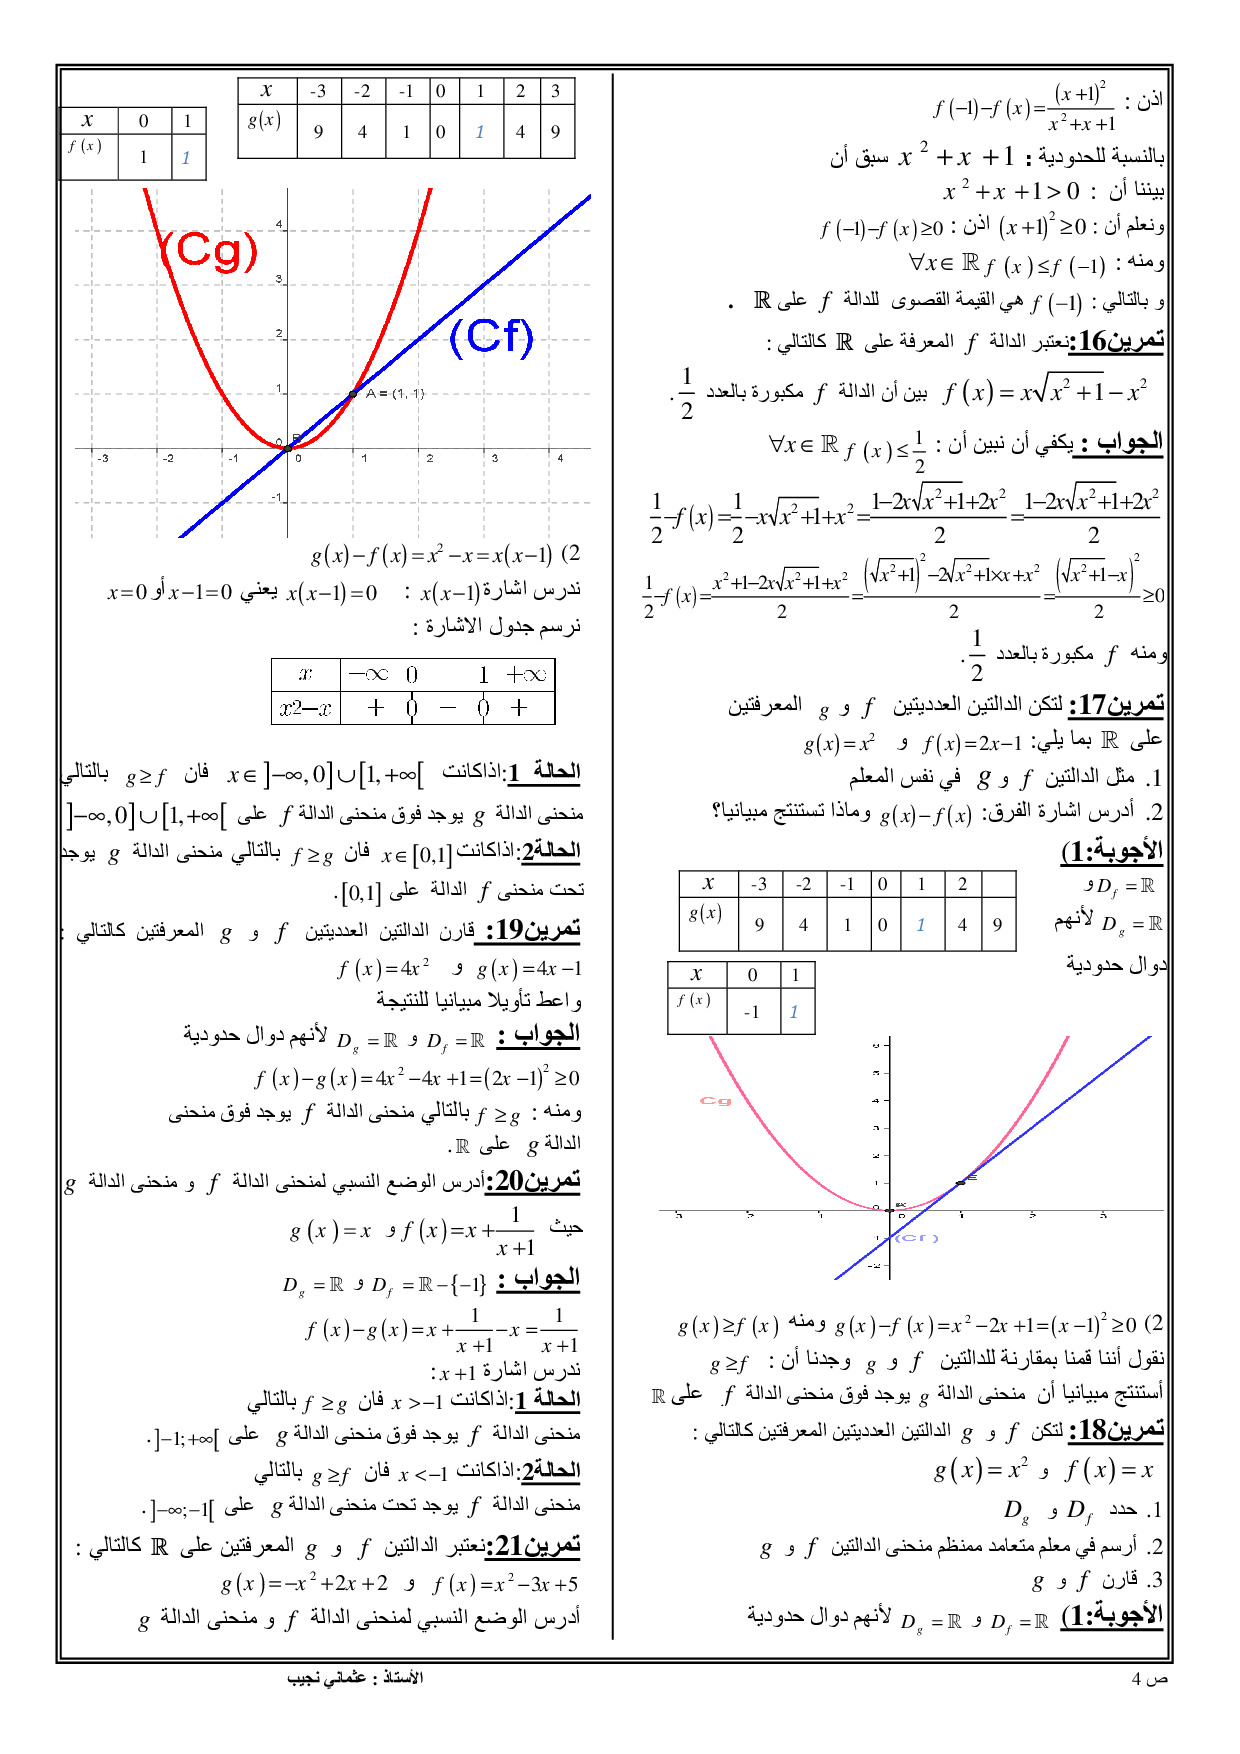 اذن : f(−1)−f(x)=(x+1)²/(x²+x+1)
بالنسبة للحدودية : x²+x+1 سبق أن
بيننا أن : x²+x+1>0
ونعلم أن : (x+1)²≥0 اذن : f(−1)−f(x)≥0
ومنه : f(x)≤f(−1) ∀x∈ℝ
و بالتالي : f(−1) هي القيمة القصوى للدالة f على ℝ .
تمرين16:نعتبر الدالة f المعرفة على ℝ كالتالي :
f(x)=x√(x²+1)−x² بين أن الدالة f مكبورة بالعدد 1/2 .
الجواب : يكفي أن نبين أن : f(x)≤1/2 ∀x∈ℝ
1/2−f(x)=1/2−x√(x²+1)+x²=(1−2x√(x²+1)+2x²)/2=(1−2x√(x²+1)+2x²)/2
1/2−f(x)=(x²+1−2x√(x²+1)+x²)/2=((√(x²+1))²−2√(x²+1)×x+x²)/2=(√(x²+1)−x)²/2≥0
ومنه f مكبورة بالعدد 1/2 .
تمرين17: لتكن الدالتين العدديتين f و g المعرفتين
على ℝ بما يلي: f(x)=2x−1 و g(x)=x²
1. مثل الدالتين f و g في نفس المعلم
2. أدرس اشارة الفرق: g(x)−f(x) وماذا تستنتج مبيانيا؟
الأجوبة:1)
D_f=ℝ و
D_g=ℝ لأنهم
دوال حدودية
x -3 -2 -1 0 1 2
g(x) 9 4 1 0 1 4 9
x 0 1
f(x) -1 1
Cg
(Cf)
2) g(x)−f(x)=x²−2x+1=(x−1)²≥0 ومنه g(x)≥f(x)
نقول أننا قمنا بمقارنة للدالتين f و g وجدنا أن : g≥f
أستنتج مبيانيا أن منحنى الدالة g يوجد فوق منحنى الدالة f على ℝ
تمرين18: لتكن f و g الدالتين العدديتين المعرفتين كالتالي :
f(x)=x و g(x)=x²
1. حدد D_f و D_g
2. أرسم في معلم متعامد ممنظم منحنى الدالتين f و g
3. قارن f و g
الأجوبة:1) D_f=ℝ و D_g=ℝ لأنهم دوال حدودية
x -3 -2 -1 0 1 2 3
g(x) 9 4 1 0 1 4 9
x 0 1
f(x) 1 1
(Cg)
(Cf)
A = (1, 1)
4
3
2
1
0
-1
-3 -2 -1 0 1 2 3 4
2) g(x)−f(x)=x²−x=x(x−1)
ندرس اشارة x(x−1) : x(x−1)=0 يعني x−1=0 أو x=0
نرسم جدول الاشارة :
x −∞ 0 1 +∞
x2−x + 0 − 0 +
الحالة 1:اذاكانت x∈]−∞,0]∪[1,+∞[ فان g≥f بالتالي
منحنى الدالة g يوجد فوق منحنى الدالة f على ]−∞,0]∪[1,+∞[
الحالة2:اذاكانت x∈[0,1] فان f≥g بالتالي منحنى الدالة g يوجد
تحت منحنى f الدالة على [0,1] .
تمرين19: قارن الدالتين العدديتين f و g المعرفتين كالتالي :
g(x)=4x−1 و f(x)=4x²
واعط تأويلا مبيانيا للنتيجة
الجواب : D_f=ℝ و D_g=ℝ لأنهم دوال حدودية
f(x)−g(x)=4x²−4x+1=(2x−1)²≥0
ومنه : f≥g بالتالي منحنى الدالة f يوجد فوق منحنى
الدالة g على ℝ .
تمرين20:أدرس الوضع النسبي لمنحنى الدالة f و منحنى الدالة g
حيث f(x)=x+1/(x+1) و g(x)=x
الجواب : D_f=ℝ−{−1} و D_g=ℝ
f(x)−g(x)=x+1/(x+1)−x=1/(x+1)
ندرس اشارة x+1:
الحالة 1:اذاكانت x>−1 فان f≥g بالتالي
منحنى الدالة f يوجد فوق منحنى الدالة g على ]−1;+∞[ .
الحالة2:اذاكانت x<−1 فان g≥f بالتالي
منحنى الدالة f يوجد تحت منحنى الدالة g على ]−∞;−1[ .
تمرين21:نعتبر الدالتين f و g المعرفتين على ℝ كالتالي :
f(x)=x²−3x+5 و g(x)=−x²+2x+2
أدرس الوضع النسبي لمنحنى الدالة f و منحنى الدالة g
ص 4
الأستاذ : عثماني نجيب